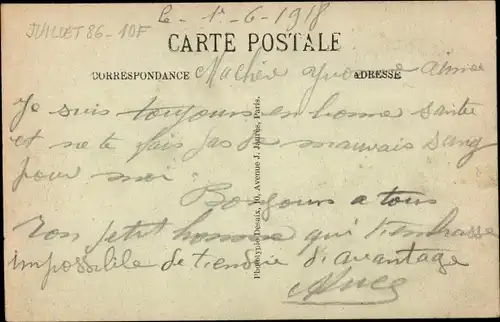 JUILLET 86 - 10F
Le 1-6-1918
CARTE POSTALE
CORRESPONDANCE
ADRESSE
Ma chère Yvonne aimée
Je suis toujours en bonne santé
et ne te fais pas de mauvais sang
pour moi
Bonjours a tous
Ton petit homme qui t'embrasse
impossible de t'endire d'avantage
Phototypie Desaix, 10, Avenue J. Jaurès, Paris.